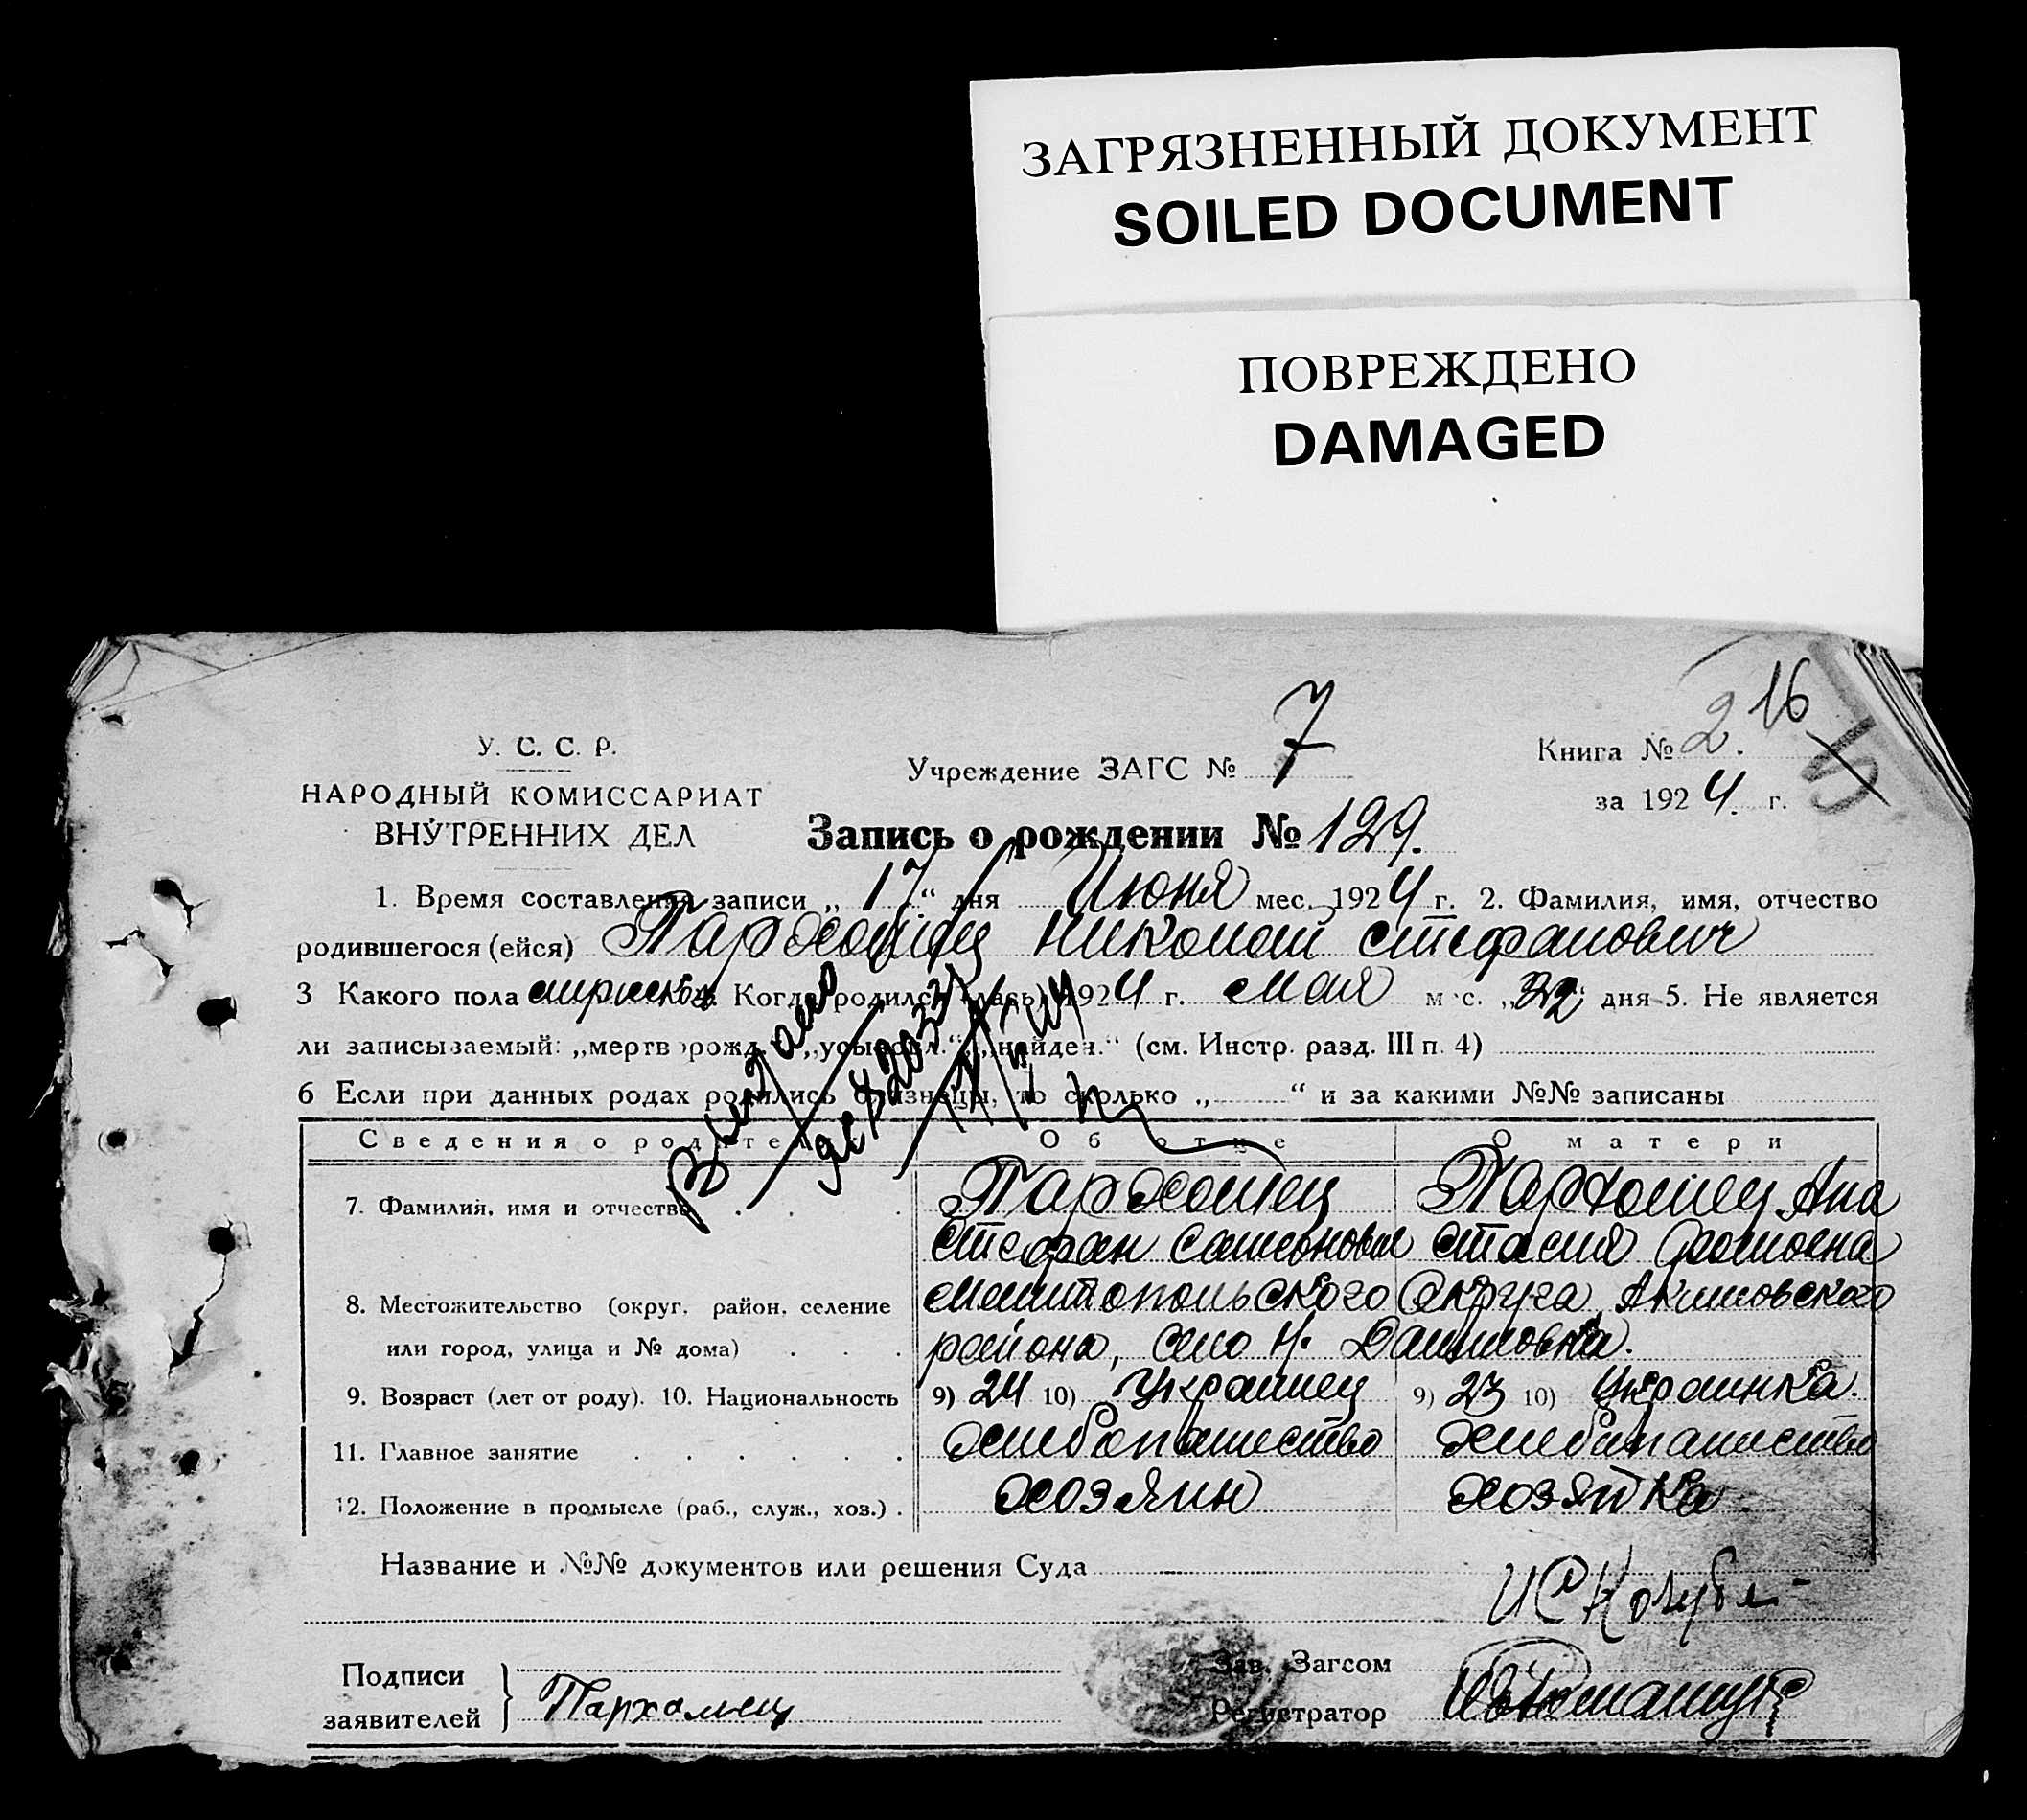 ЗАГРЯЗНЕННЫЙ ДОКУМЕНТ
SOILED DOCUMENT
ПОВРЕЖДЕНО
DAMAGED
16
У. С. С. Р.
НАРОДНЫЙ КОМИССАРИАТ
ВНУТРЕННИХ ДЕЛ
Учреждение ЗАГС № 7
Книга № 2.
за 1924 г.
Запись о рождении № 129.
1. Время составления записи „17“ дня Июня мес. 1924 г. 2. Фамилия, имя, отчество
родившегося (ейся) Пархомец Николай Стефанович
3 Какого пола Когда родился (лась) 1924 г. Мая мес. дня 5. Не является
ли записываемый: „мертворожд.“, „усыновл.“, „найден.“ (см. Инстр. разд. III п. 4)
6 Если при данных родах родились близнецы, то сколько „ “ и за какими №№ записаны
Сведения о родителях Об отце О матери
7. Фамилия, имя и отчество Пархомец Пархомец Ана
Стефан Самсонович стасия Фомовна
8. Местожительство (округ, район, селение Мелитопольского Округа, Акимовского
или город, улица и № дома) района, село Н. Даниловка.
9. Возраст (лет от роду). 10. Национальность 9) 24 10) Украинец 9) 23 10) Украинка.
11. Главное занятие хлебопашество хлебопашество
12. Положение в промысле (раб., служ., хоз.) хозяин хозяйка
Название и №№ документов или решения Суда
Подписи
заявителей
Пархомец
Зав. Загсом
Регистратор